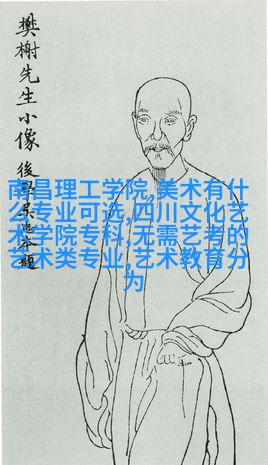 樊榭先生小像
後
南昌理工学院,美术有什
么专业可选,四川文化艺
术学院专科,无需艺考的
艺术类专业,艺术教育分
为